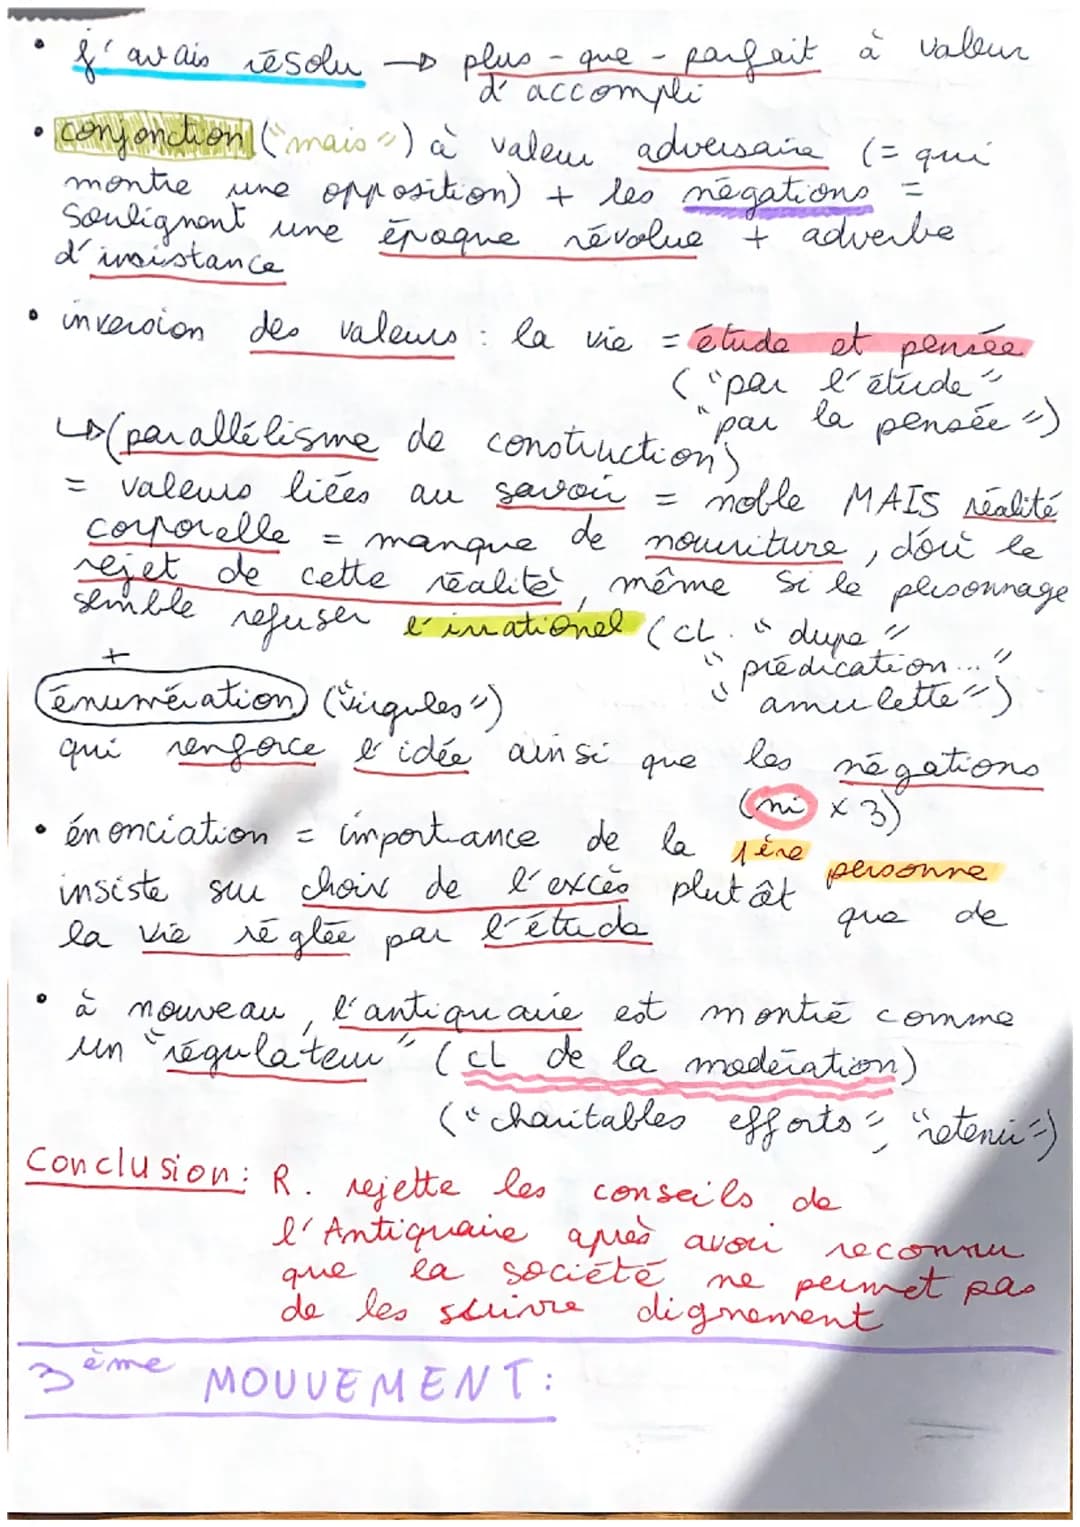 • j'avais résolu → plus-que-parfait à valeur
d'accompli
• conjonction ("mais") à valeur adversaire (= qui
montre une opposition) + les négations =
Soulignent une époque révolue + adverbe
d'insistance
• inversion des valeurs : la vie = étude et pensée
("par l'étude"
"par la pensée")
↳ (parallélisme de construction)
= valeurs liées au savoir = noble MAIS réalité
corporelle = manque de nourriture, d'où le
rejet de cette réalité, même si le personnage
semble refuser l'irrationel (cL. "dupe"
"prédication..."
"amulette")
+
énumération ("virgules")
qui renforce l'idée ainsi que les négations
(ni x 3)
• énonciation = importance de la 1ère personne
insiste sur choix de l'excès plutât que de
la vie réglée par l'étude
• à nouveau, l'antiquaire est montré comme
un "régulateur" (cL de la modération)
("charitables efforts", "retenir")
Conclusion : R. rejette les conseils de
l'Antiquaire après avoir reconnu
que la société ne permet pas
de les suivre dignement
3ème MOUVEMENT :